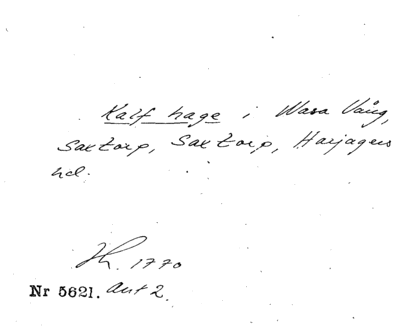 Kalf hage i Wara Vång,
Saxtorp, Saxtorp, Harjagers
hd.
Jh. 1770
Nr 5621. Akt 2.